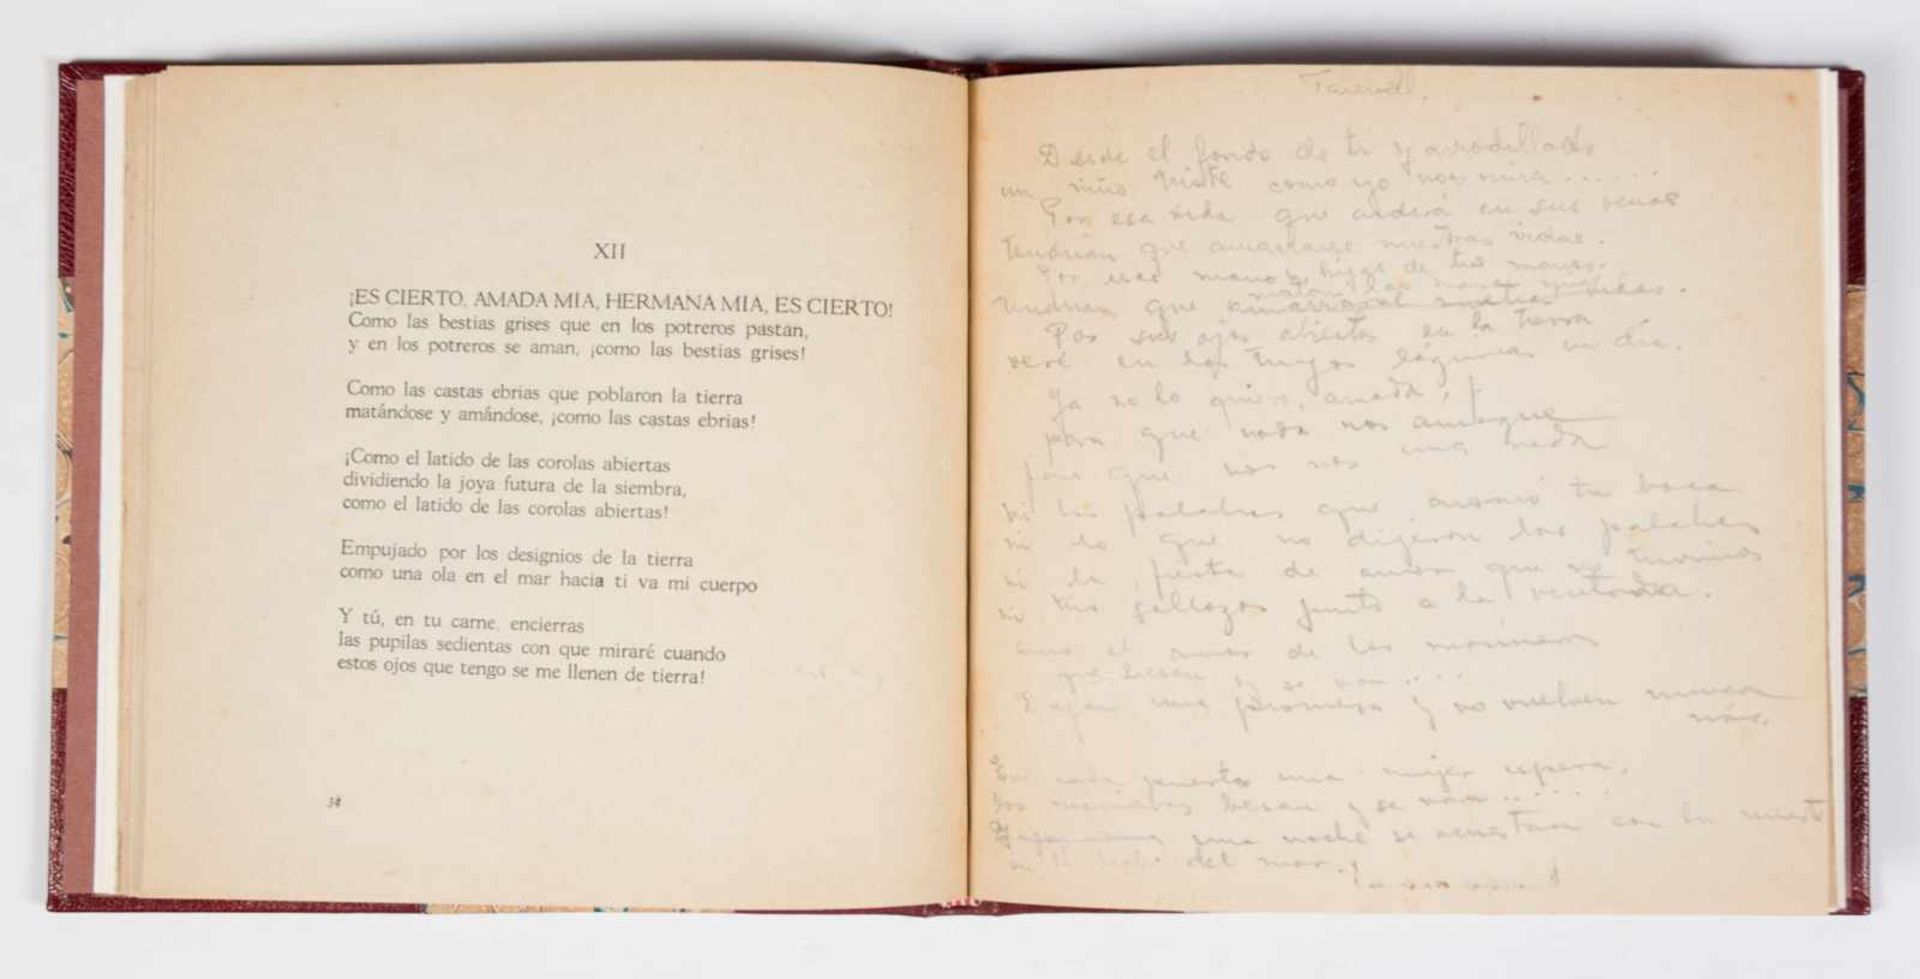 XII
¡ES CIERTO, AMADA MIA, HERMANA MIA, ES CIERTO!
Como las bestias grises que en los potreros pastan,
y en los potreros se aman, ¡como las bestias grises!
Como las castas ebrias que poblaron la tierra
matándose y amándose, ¡como las castas ebrias!
¡Como el latido de las corolas abiertas
dividiendo la joya futura de la siembra,
como el latido de las corolas abiertas!
Empujado por los designios de la tierra
como una ola en el mar hacia ti va mi cuerpo
Y tú, en tu carne, encierras
las pupilas sedientas con que miraré cuando
estos ojos que tengo se me llenen de tierra!
34
Desde el fondo de ti y arrodillado
un niño triste como yo nos mira......
Por esa vida que arderá en sus venas
tendrían que amarrarse nuestras vidas.
Por esas manos hijas de tus manos.
tendrían que
Por sus ojos abiertos en la tierra
veré en los tuyos lágrimas un día.
Ya no lo quiero, amada,
para que nada nos amarre
para que no nos una nada
ni la palabra que aromó tu boca
ni lo que no dijeron las palabras
ni la fiesta de amor que no tuvimos
ni tus sollozos junto a la ventana.
amo el amor de los marineros
que besan y se van....
Dejan una promesa y no vuelven nunca
más.
En cada puerto una mujer espera,
los marineros besan y se van......
una noche se acuestan con la muerte
en el lecho del mar.